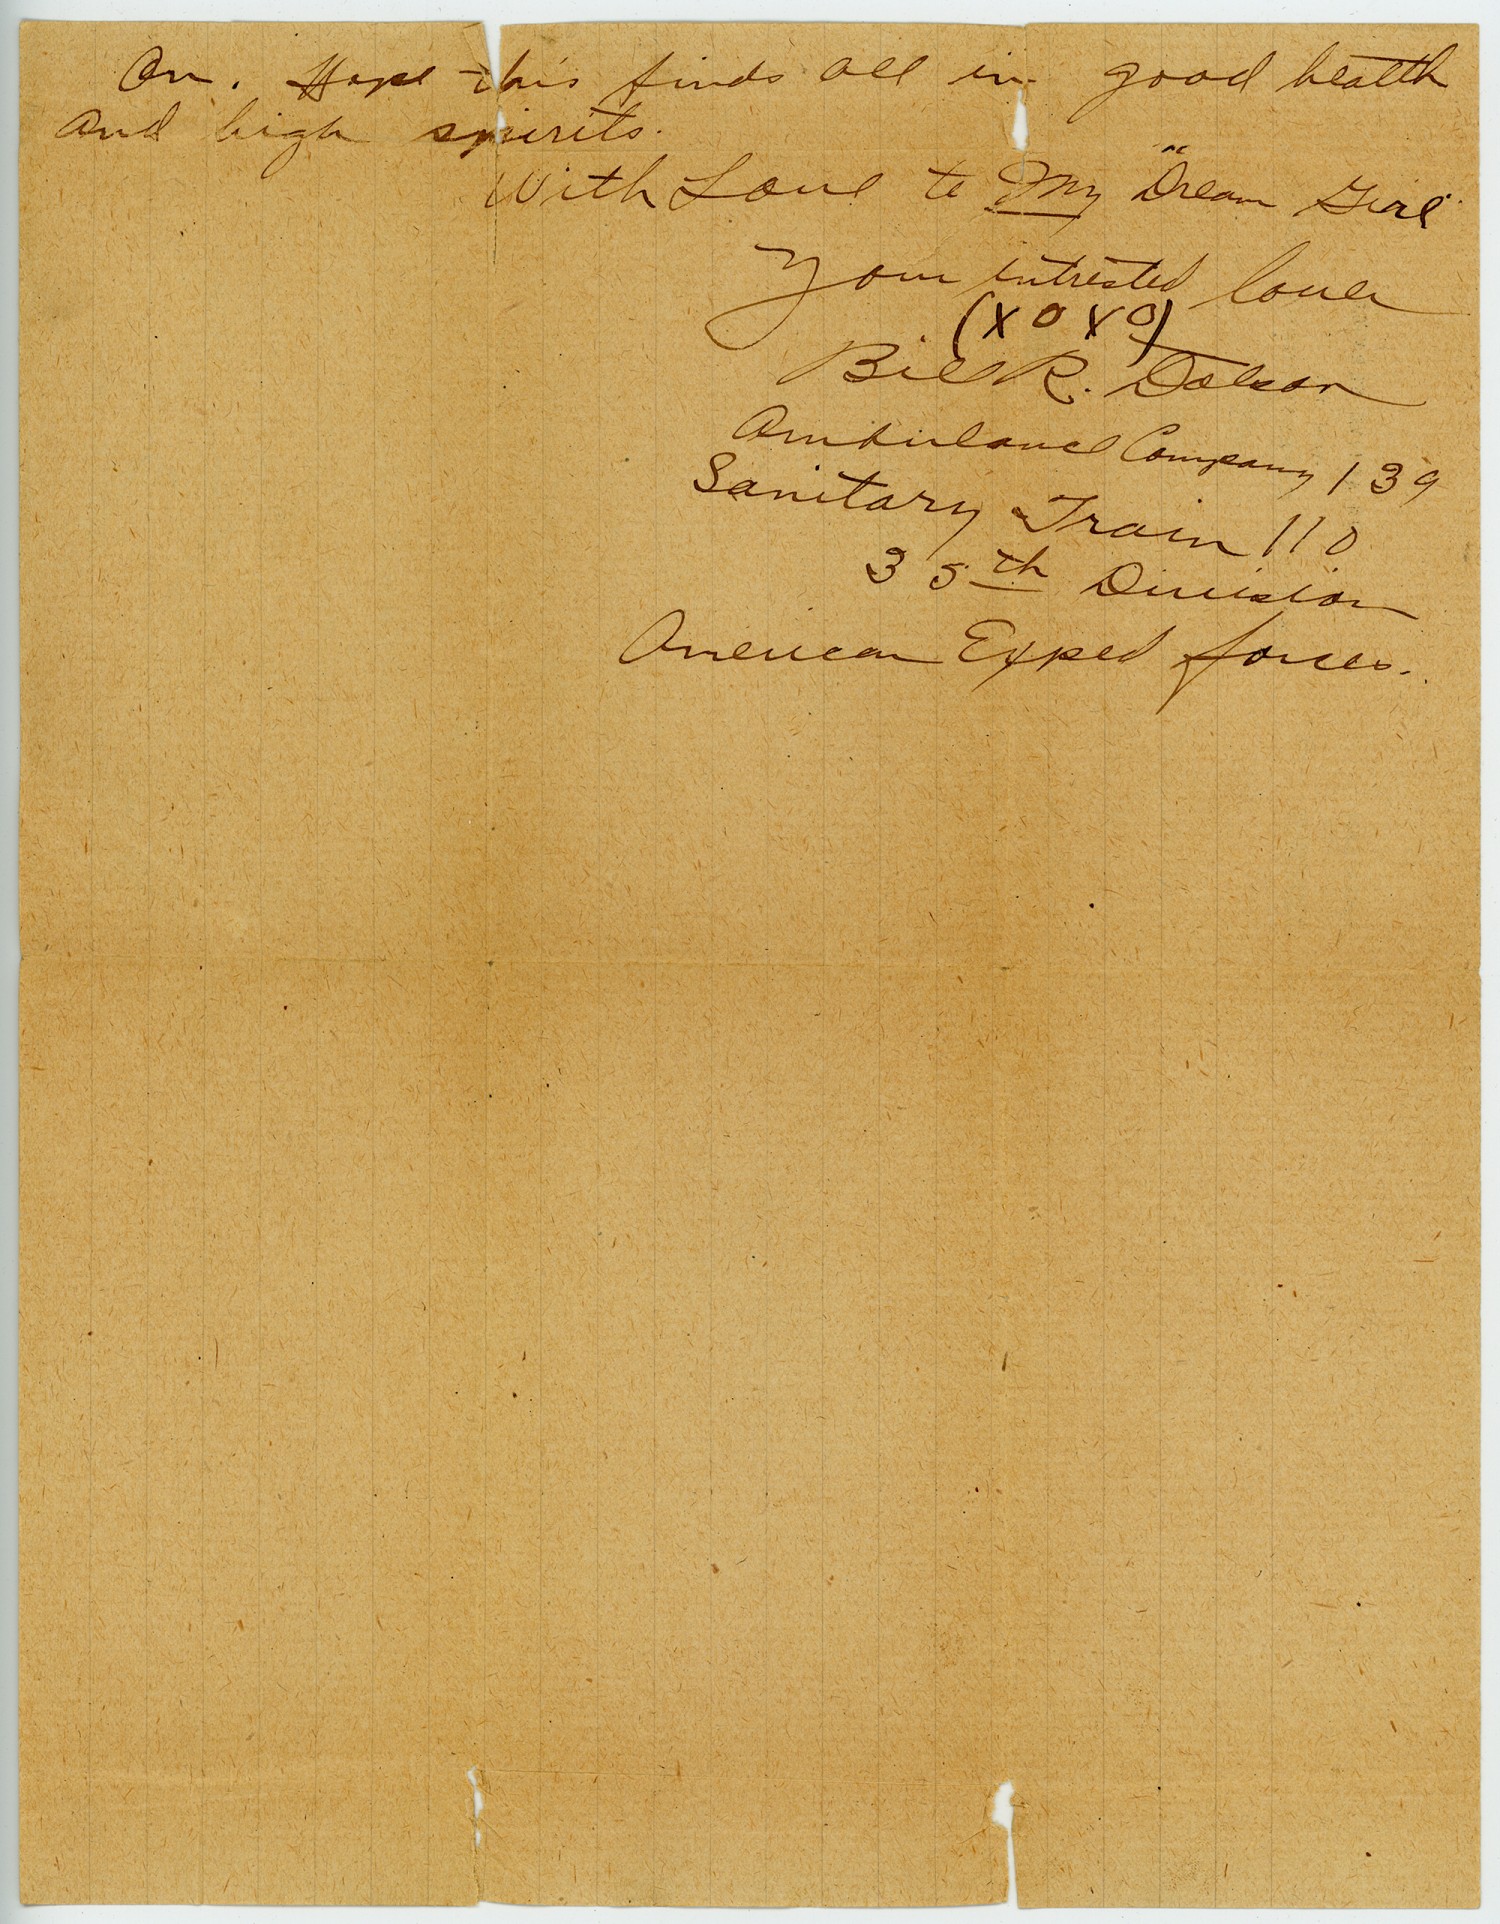 On. Hope this finds all in good health
and high spirits.
With Love to My "Dream Girl"
Your intrested lover
(XOXO)
Bill R. Dolson
Ambulance Company 139
Sanitary Train 110
35th Division
American Exped forces.